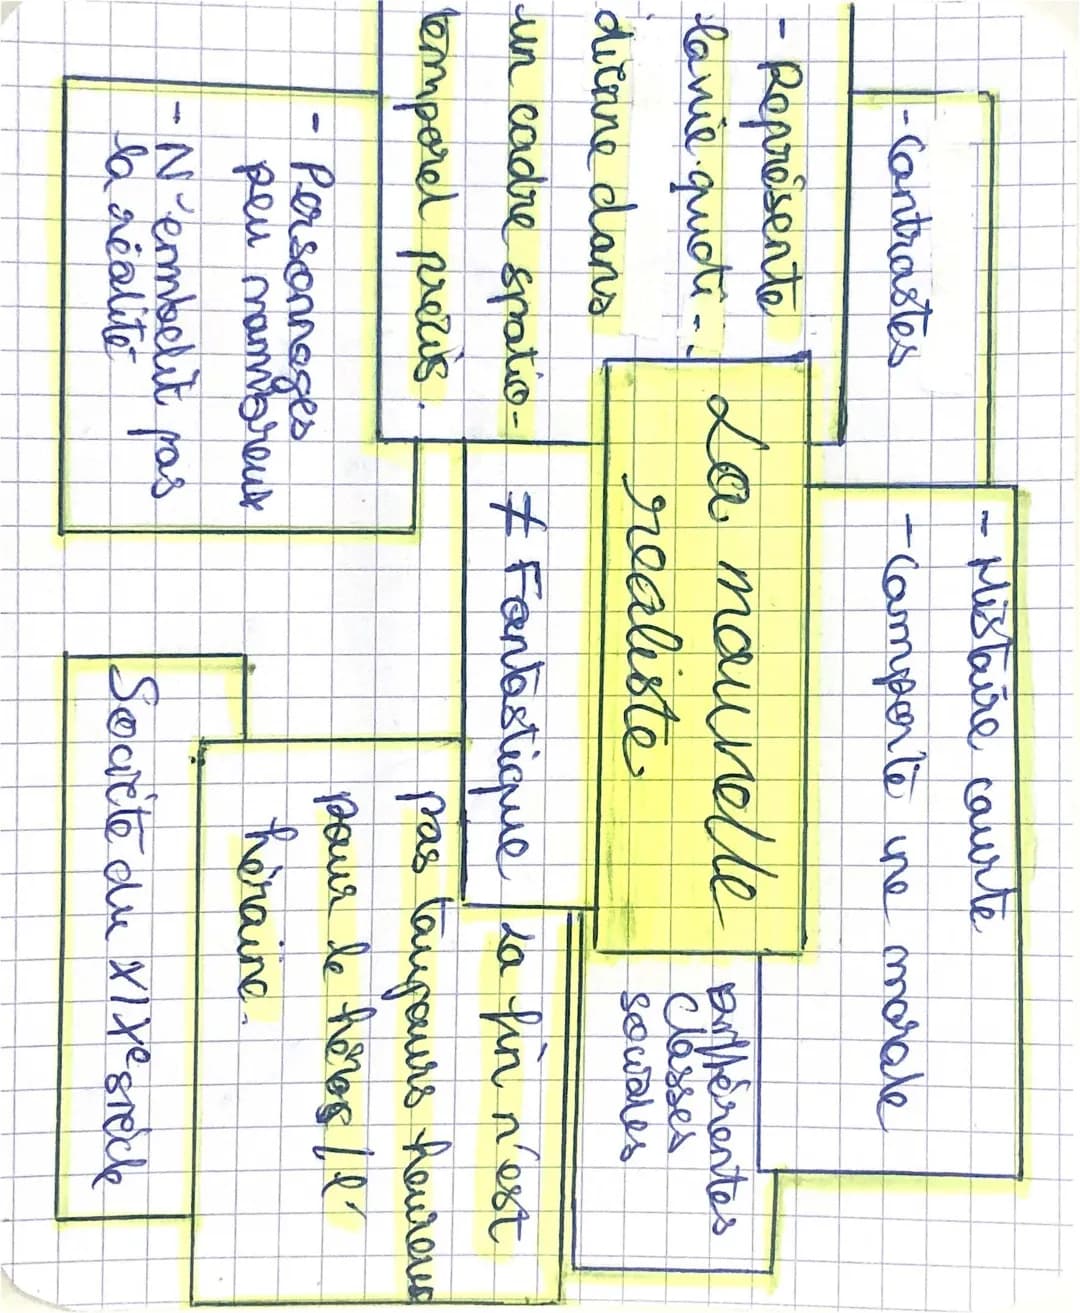 - Contrastes
- Histoire courte
- Comporte une morale
- Représente
la vie quoti-
dienne dans
un cadre spatio-
temporel précis.
La nouvelle
realiste
différentes
classes
sociales
≠ Fantastique
- Personnages
peu nombreux
- N'embelit pas
la réalité
La fin n'est
pas toujours heureuse
pour le héros/l'
héroine.
Société du XIXe siècle